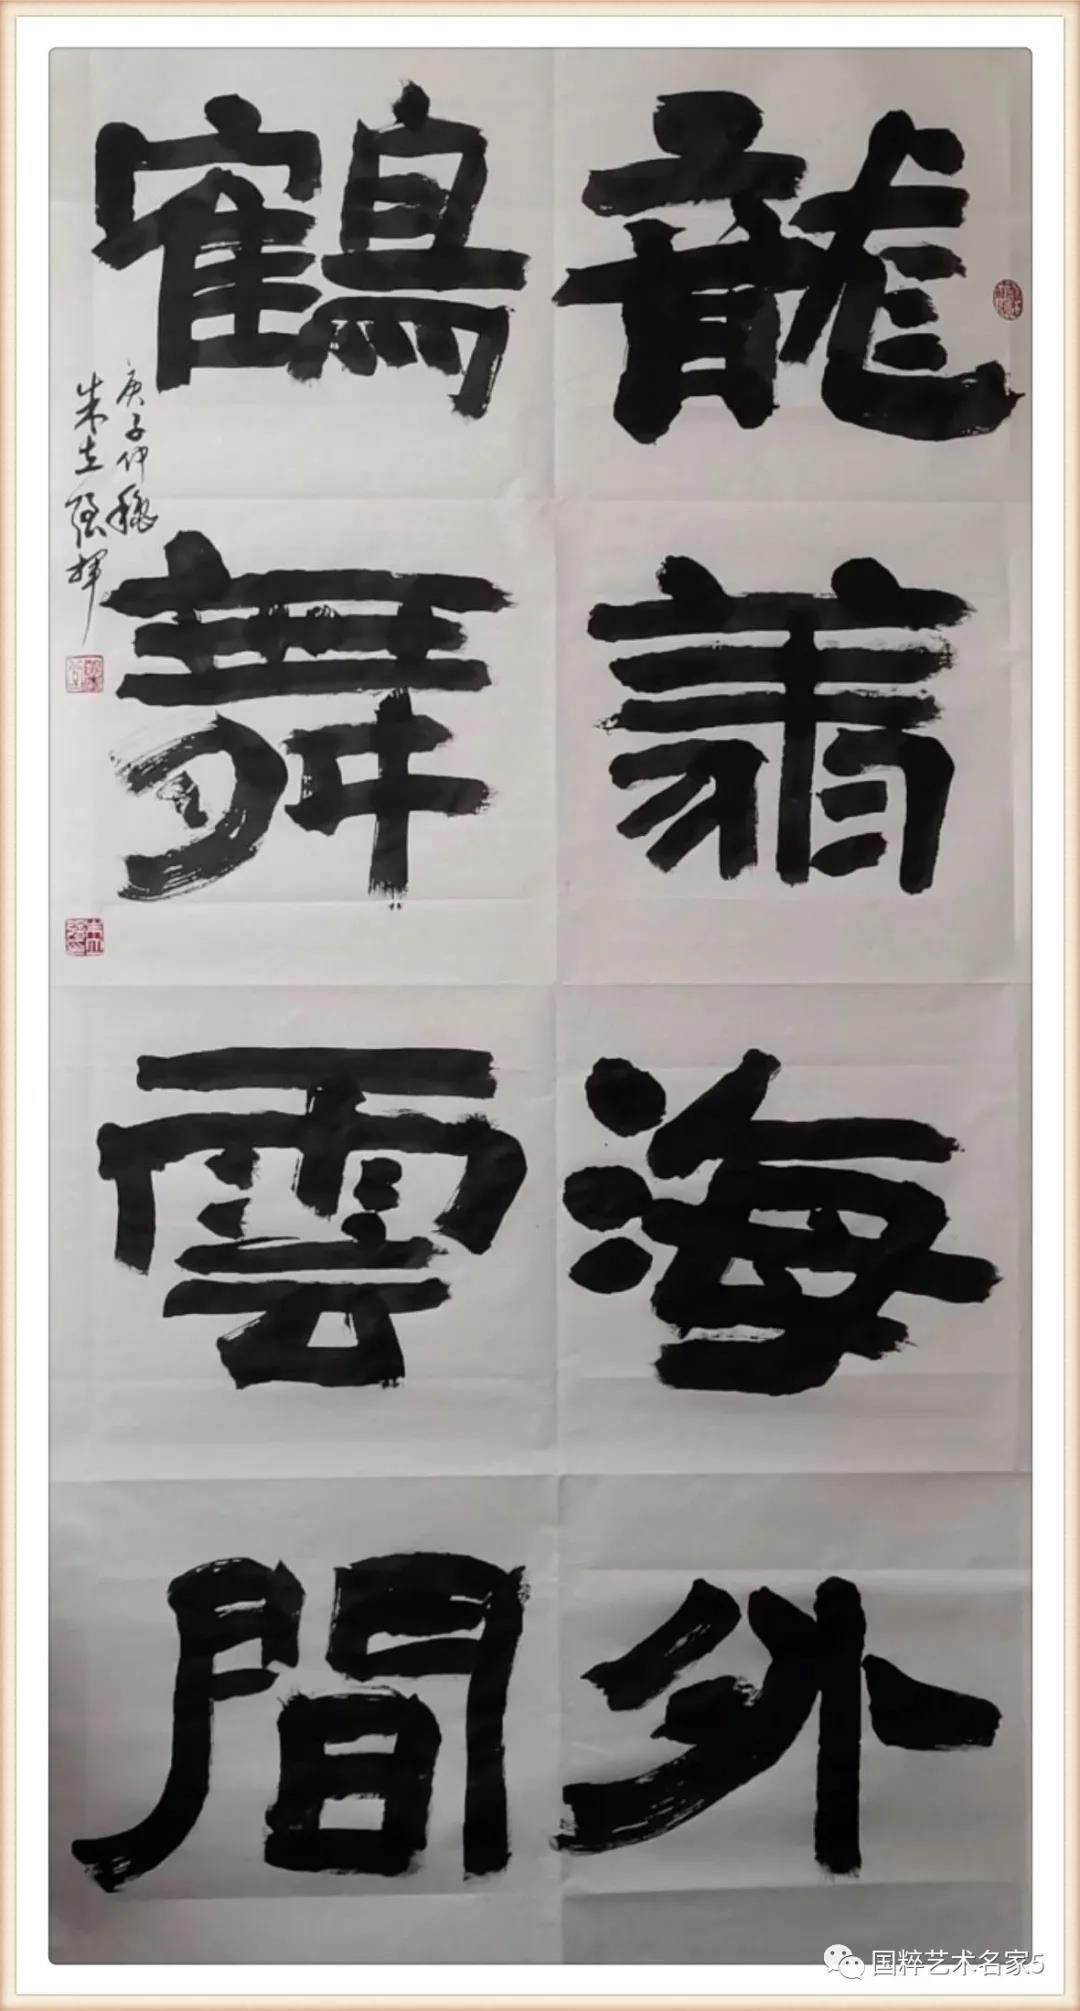 龍翔海外
鶴舞雲間
庚子仲秋
朱立强挥
国粹艺术名家5